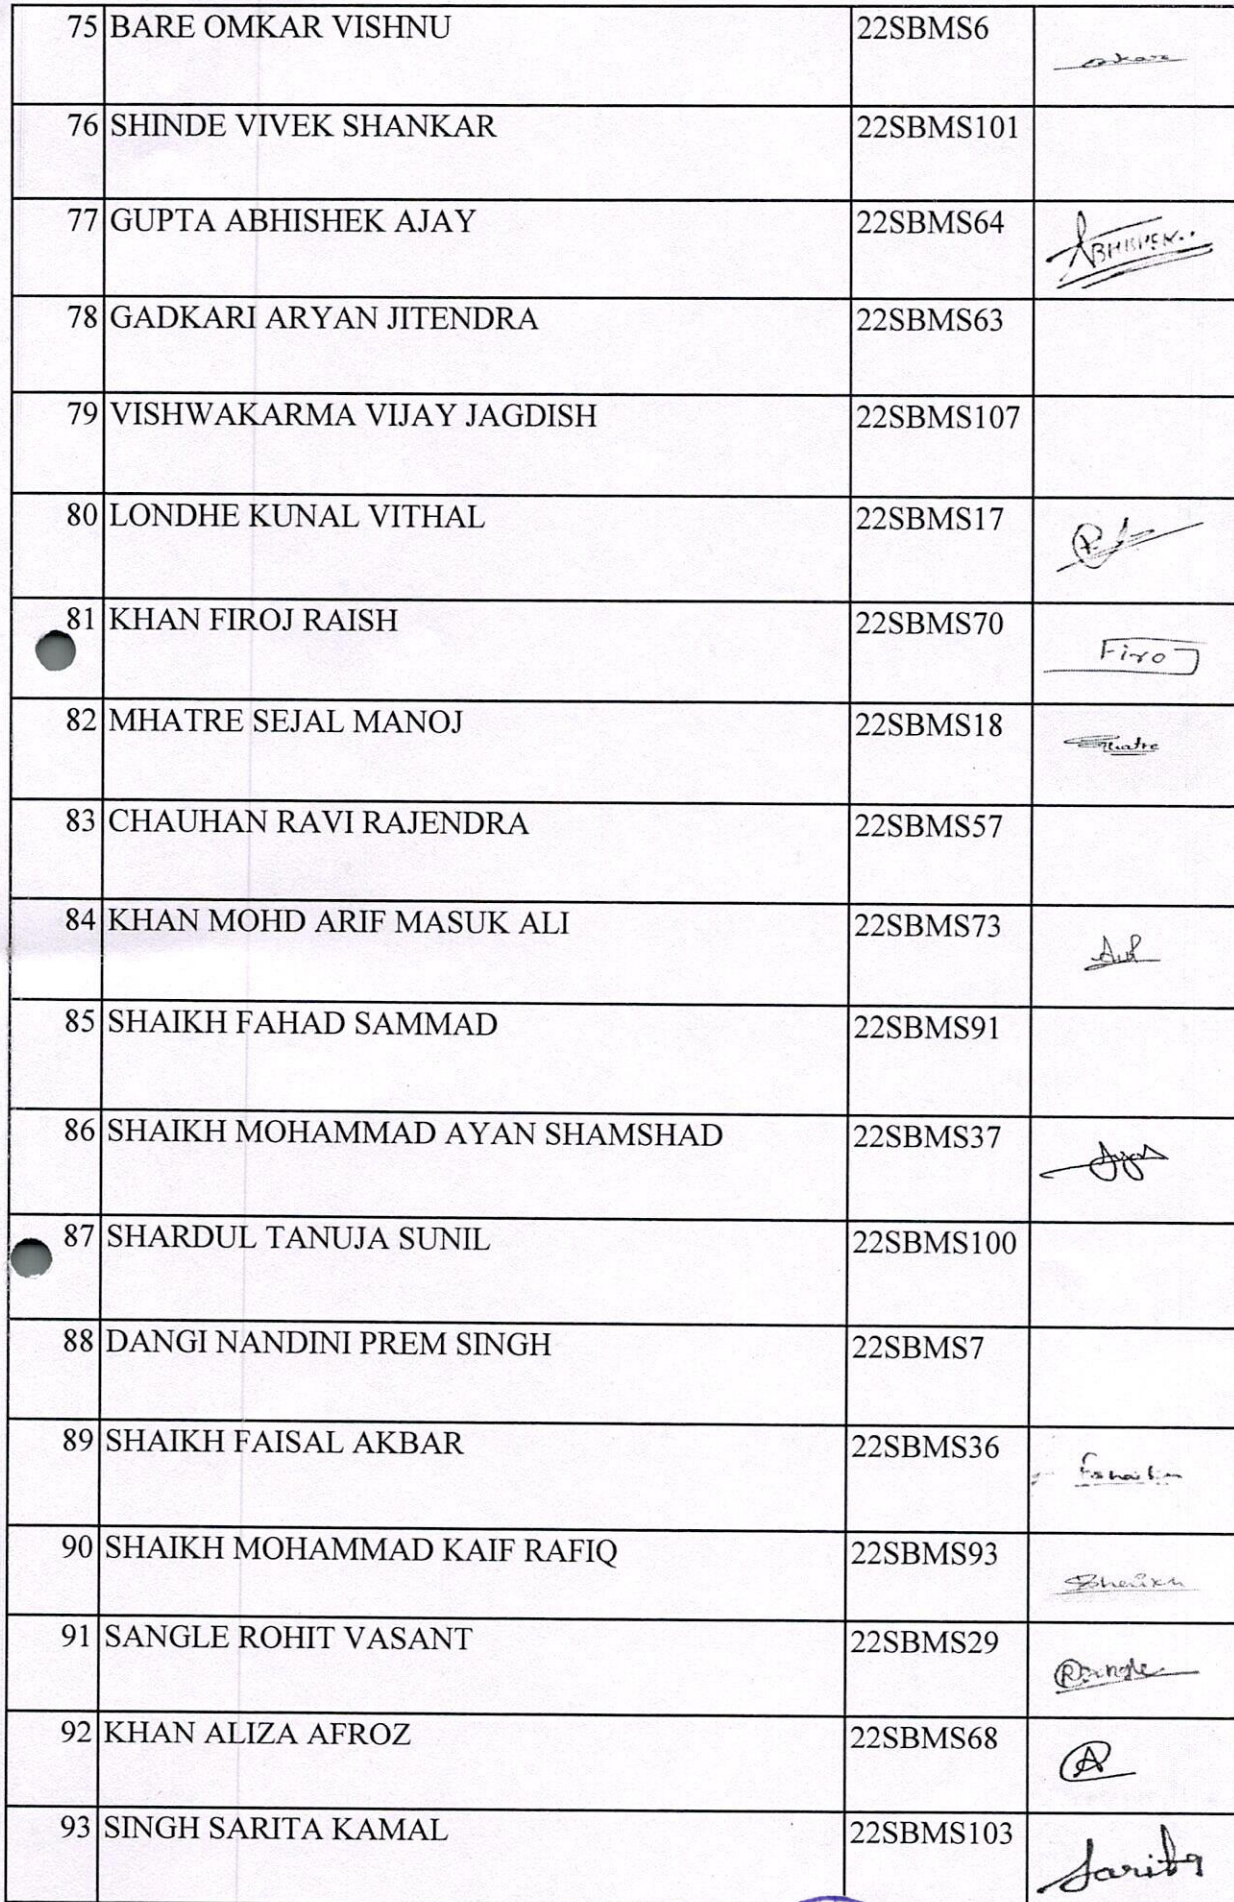 75 BARE OMKAR VISHNU 22SBMS6
76 SHINDE VIVEK SHANKAR 22SBMS101
77 GUPTA ABHISHEK AJAY 22SBMS64 ABHISHEK..
78 GADKARI ARYAN JITENDRA 22SBMS63
79 VISHWAKARMA VIJAY JAGDISH 22SBMS107
80 LONDHE KUNAL VITHAL 22SBMS17
81 KHAN FIROJ RAISH 22SBMS70 Firoj
82 MHATRE SEJAL MANOJ 22SBMS18
83 CHAUHAN RAVI RAJENDRA 22SBMS57
84 KHAN MOHD ARIF MASUK ALI 22SBMS73
85 SHAIKH FAHAD SAMMAD 22SBMS91
86 SHAIKH MOHAMMAD AYAN SHAMSHAD 22SBMS37
87 SHARDUL TANUJA SUNIL 22SBMS100
88 DANGI NANDINI PREM SINGH 22SBMS7
89 SHAIKH FAISAL AKBAR 22SBMS36
90 SHAIKH MOHAMMAD KAIF RAFIQ 22SBMS93
91 SANGLE ROHIT VASANT 22SBMS29
92 KHAN ALIZA AFROZ 22SBMS68 A
93 SINGH SARITA KAMAL 22SBMS103 Sarita